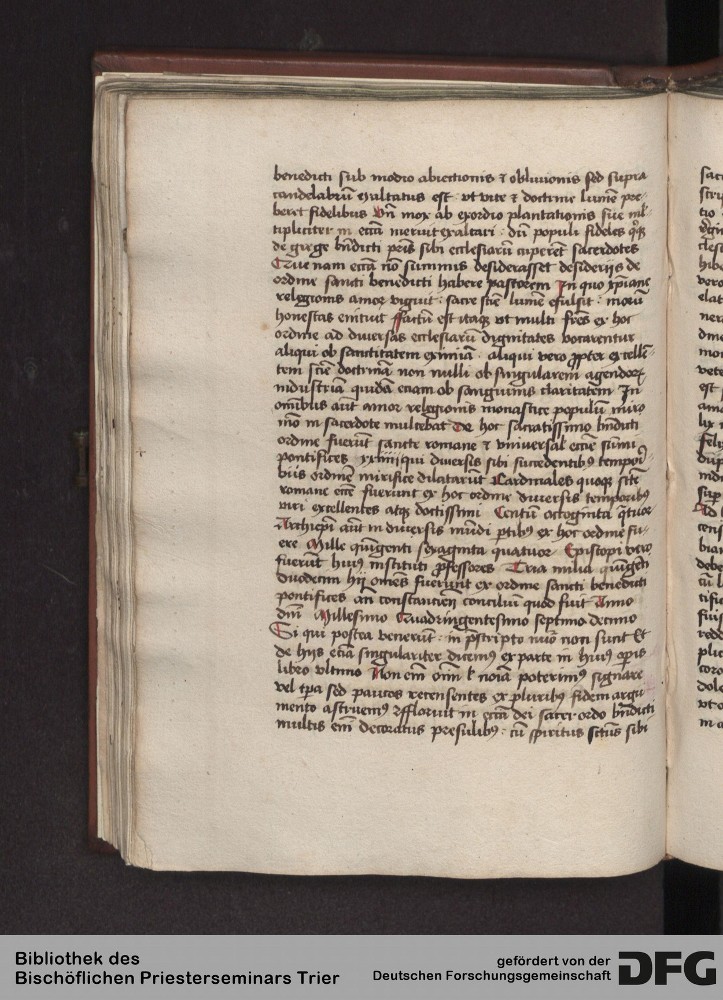 benedicti sub modio abiectionis ⁊ obliuionis sed supra
candelabrū exaltatus est · vt vite ⁊ doctrine lumē pre-
beret fidelibus Vn̄ mox ab exordio plantationis sue ml̄-
tipliciter in eccĺia meruit exaltari : dū populi fideles
de grege bn̄dicti pr̄is sibi ecclesiarū cuperēt sacerdotes
Que nam eccĺia nō summis desiderasset desiderijs de
ordine sancti benedicti habere pastorem In quo xp̄iane
relegionis amor viguit : sacre sciē lumē efulsit : morū
honestas enituit ffactū est itaqꝫ vt multi fr̄es ex hoc
ordine ad diuersas ecclesiarū dignitates vocarentur
aliqui ob sanctitatem eximiā · aliqui vero ꝓpter excellē-
tem sciē doctrinā non nulli ob singularem agendoꝝ
industriā quidā eciam ob sanguinis claritatem In
om̄ibus aūt amor relegionis monastice populū miro
mō in sacerdote mulcebat De hoc sacratissimo bn̄dicti
ordine fuerūt sancte romane ⁊ vniuersal eccĺie sūmi
pontifices xxiiij qui diuersis sibi succedentibꝰ tempori-
bus ordinē mirifice dilatarūt Cardinales quoqꝫ scē
romane eccĺie fuerunt ex hoc ordine diuersis temporibꝰ
viri excellentes atqꝫ doctissimi Centū octoginta q̄tuor
Archiepi aūt in diuersis mūdi ꝑtibꝰ ex hoc ordine fu-
ere Mille quīgenti sexaginta quatuor Episcopi vero
fuerūt huiꝰ instituti ꝓfessores Tria milia quīgenti
duodecim hij om̄es fuerunt ex ordine sancti benedicti
pontifices an̄ constantien̄ conciliū quod fuit Anno
dn̄i Millesimo Quadringentesimo septimo decimo
Si qui postea venerūt : in p̄scripto nūo non sunt Et
de hijs eciā singulariter dicemꝰ ex parte in huiꝰ oꝑis
libro vltimo Non em̄ om̄i l noīa poterimꝰ signare
vel tp̄a sed paucos recensentes ex pluribꝰ fidem argu
mento astruemꝰ Effloruit in eccĺia dei sacer ordo bn̄dicti
multis em̄ decoratus presulibꝰ : cū spiritus sctūs sibi
Bibliothek des
Bischöflichen Priesterseminars Trier
gefördert von der
Deutschen Forschungsgemeinschaft
DFG